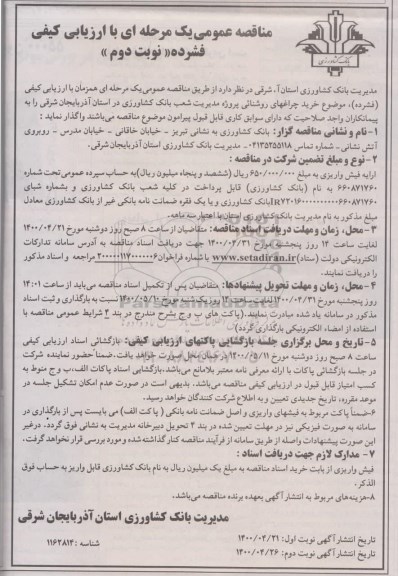 مناقصه عمومی یک مرحله ای با ارزیابی کیفی
فشرده« نوبت دوم »
بانک کشاورزی
مدیریت بانک کشاورزی استان آ. شرقی در نظر دارد از طریق مناقصه عمومی یک مرحله ای همزمان با ارزیابی کیفی
(فشرده)، موضوع خرید چراغهای روشنائی پروژه مدیریت شعب بانک کشاورزی در استان آذربایجان شرقی را به
پیمانکاران واجد صلاحیت که دارای سوابق کاری قابل قبول پیرامون موضوع مناقصه می‌باشند واگذار نماید :
۱- نام و نشانی مناقصه گزار: بانک کشاورزی به نشانی تبریز - خیابان خاقانی - خیابان مدرس - روبروی
آتش نشانی - شماره تماس ۰۴۱۳۵۲۵۵۱۱۸ - مدیریت بانک کشاورزی استان آذربایجان شرقی.
۲- نوع و مبلغ تضمین شرکت در مناقصه :
ارایه فیش واریزی به مبلغ ۶۵۰/۰۰۰/۰۰۰ ریال (ششصد و پنجاه میلیون ریال) به حساب سپرده عمومی تحت شماره
۶۶۰۸۷۱۷۶۰ به نام (بانک کشاورزی) قابل پرداخت در کلیه شعب بانک کشاورزی و بشماره شبای
بانک کشاورزی و یا یک فقره ضمانت نامه بانکی غیر از بانک کشاورزی معادل
مبلغ مذکور به نام مدیریت بانک کشاورزی استان با اعتبار سه ماهه.
۳- محل، زمان و مهلت دریافت اسناد مناقصه: متقاضیان از ساعت ۸ صبح روز دوشنبه مورخ ۱۴۰۰/۰۴/۲۱
لغایت ساعت ۱۴ روز پنجشنبه مورخ ۱۴۰۰/۰۴/۳۱ جهت دریافت اسناد مناقصه به آدرس سامانه تدارکات
الکترونیکی دولت (ستاد) www.setadiran.ir با شماره فراخوان مراجعه و اسناد مذکور
را دریافت نمایند.
۴- محل، زمان و مهلت تحویل پیشنهادها: متقاضیان پس از تکمیل اسناد مناقصه می‌باید از ساعت ۱۴:۰۱
روز پنجشنبه مورخ ۱۴۰۰/۰۴/۳۱ لغایت ساعت ۱۴ روز یک شنبه مورخ ۱۴۰۰/۰۵/۱۰ نسبت به بارگذاری و ثبت اسناد
مذکور در سامانه یاد شده مبادرت نمایند. (پاکت های ب و ج بشرح مندرج در بند ۴ شرایط عمومی مناقصه با
استفاده از امضاء الکترونیکی بارگذاری گردد)
۵- تاریخ و محل برگزاری جلسه بازگشایی پاکتهای ارزیابی کیفی: بازگشائی اسناد ارزیابی کیفی
ساعت ۸ صبح روز دوشنبه مورخ ۱۴۰۰/۰۵/۱۱ در همان محل صورت خواهد یافت. ضمنا حضور نماینده شرکت
در جلسه بازگشائی پاکات با ارائه معرفی نامه معتبر بلامانع می‌باشد، بازگشایی اسناد پاکات الف، ب و ج منوط به
کسب امتیاز قابل قبول در ارزیابی کیفی مناقصه می‌باشد. بدیهی است در صورت عدم امکان تشکیل جلسه در
موعد مقرره، تاریخ جدیدی تعیین و به اطلاع شرکت کنندگان خواهد رسید.
۶- ضمناً پاکت مربوط به فیشهای واریزی و اصل ضمانت نامه بانکی ( پاکت الف) می بایست پس از بارگذاری در
سامانه به صورت فیزیکی نیز در مهلت تعیین شده در بند ۴ تحویل دبیرخانه مدیریت به نشانی فوق گردد. در غیر
این صورت پیشنهادات واصله از طریق سامانه از فرآیند مناقصه کنار گذاشته شده و مورد بررسی قرار نخواهد گرفت.
۷- مدارک لازم جهت دریافت اسناد :
فیش واریزی از بابت خرید اسناد مناقصه به مبلغ یک میلیون ریال به نام بانک کشاورزی قابل واریز به حساب فوق
الذکر.
۸- هزینه‌های مربوط به انتشار آگهی بعهده برنده مناقصه می‌باشد.
مدیریت بانک کشاورزی استان آذربایجان شرقی
تاریخ انتشار آگهی نوبت اول: ۱۴۰۰/۰۴/۲۱
شناسه : ۱۱۶۲۸۱۴
تاریخ انتشار آگهی نوبت دوم: ۱۴۰۰/۰۴/۲۶